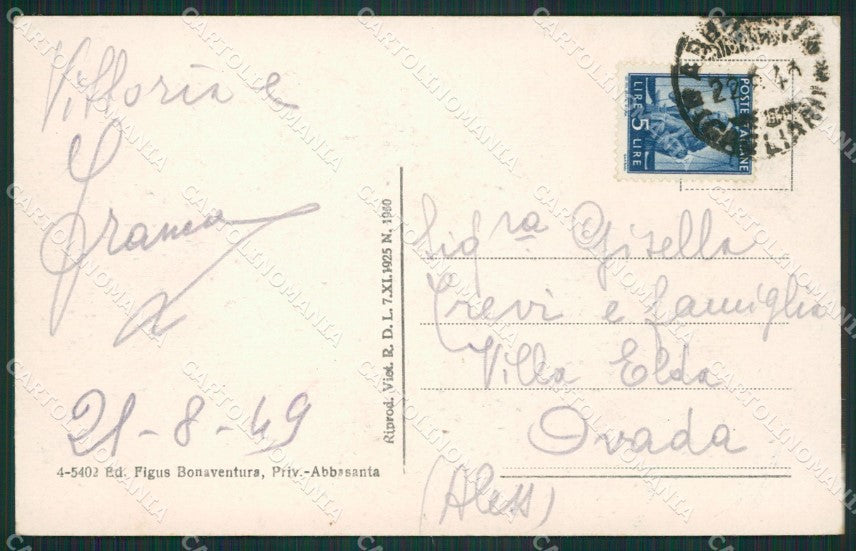 Vittoria e
Franca
21-8-49
4-5402 Ed. Figus Bonaventura, Priv.-Abbasanta
Riprod. Viet. R. D. L. 7.XI.1925 N. 1960
POSTE ITALIANE
LIRE 5 LIRE
Sig.ra Gisella
Trevi e Famiglia
Villa Elda
Ovada
(Aless)
CARTOLINOMANIA